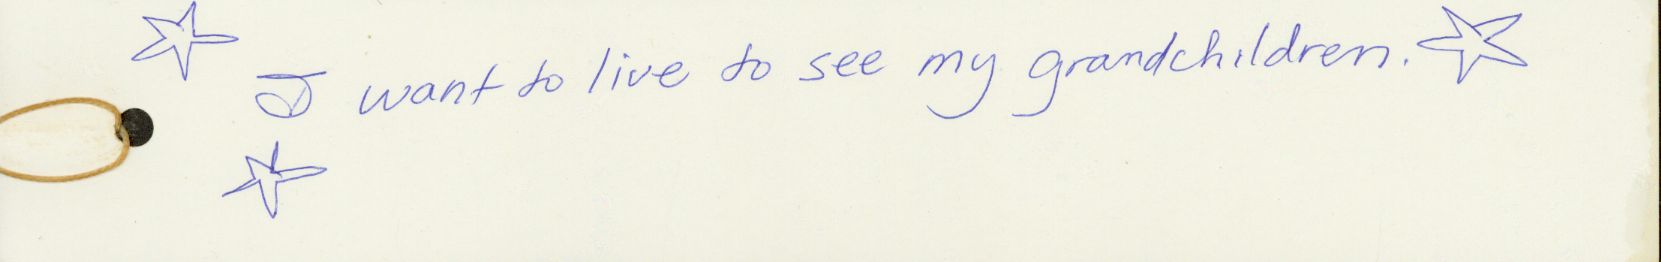 I want to live to see my grandchildren.